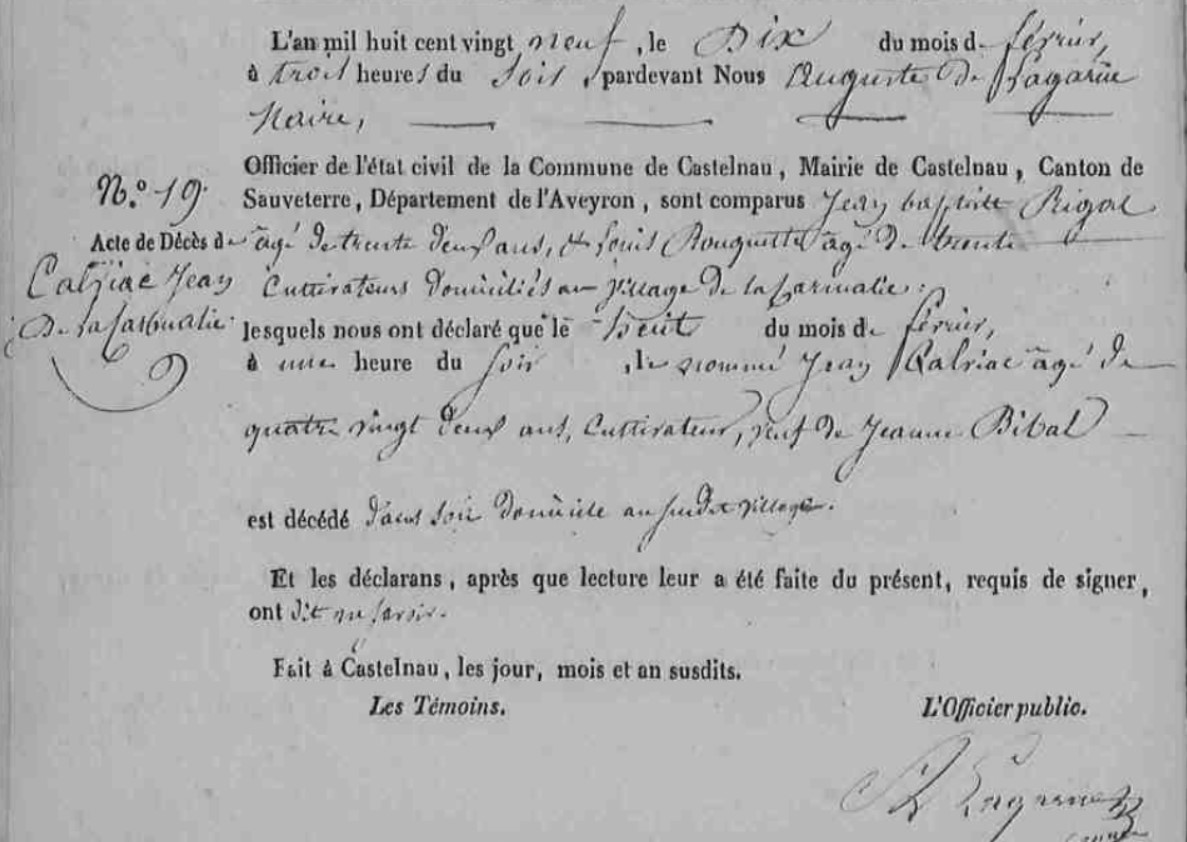 L'an mil huit cent vingt neuf, le Dix du mois de février,
à trois heures du soir, pardevant Nous Auguste de
Maire,
Officier de l'état civil de la Commune de Castelnau, Mairie de Castelnau, Canton de
N.o 19.
Sauveterre, Département de l'Aveyron, sont comparus Jean baptiste Rigal
Acte de Décès de
âgé de trente deux ans, & Louis Rouquette âgé de trente
Calviac Jean
Cultivateurs domiciliés au village de
De
lesquels nous ont déclaré que le huit du mois de février,
à une heure du soir, le nommé Jean Calviac âgé de
quatre vingt deux ans, Cultivateur, veuf de Jeanne Bibal
est décédé dans son domicile au susdit village.
Et les déclarans, après que lecture leur a été faite du présent, requis de signer,
ont dit ne savoir.
Fait à Castelnau, les jour, mois et an susdits.
Les Témoins. L'Officier public.